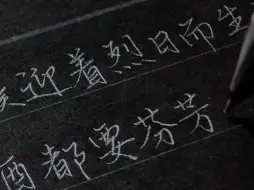 迎着烈日而生
都要芬芳